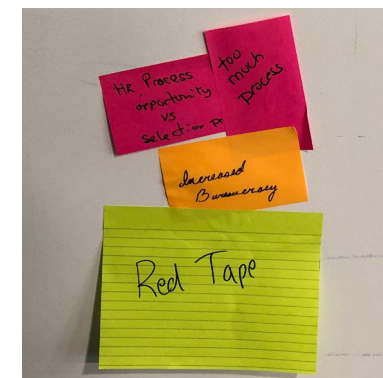 HR Process
opportunity
vs
Selection Pr
too
much
process
Increased
Bureaucracy
Red Tape